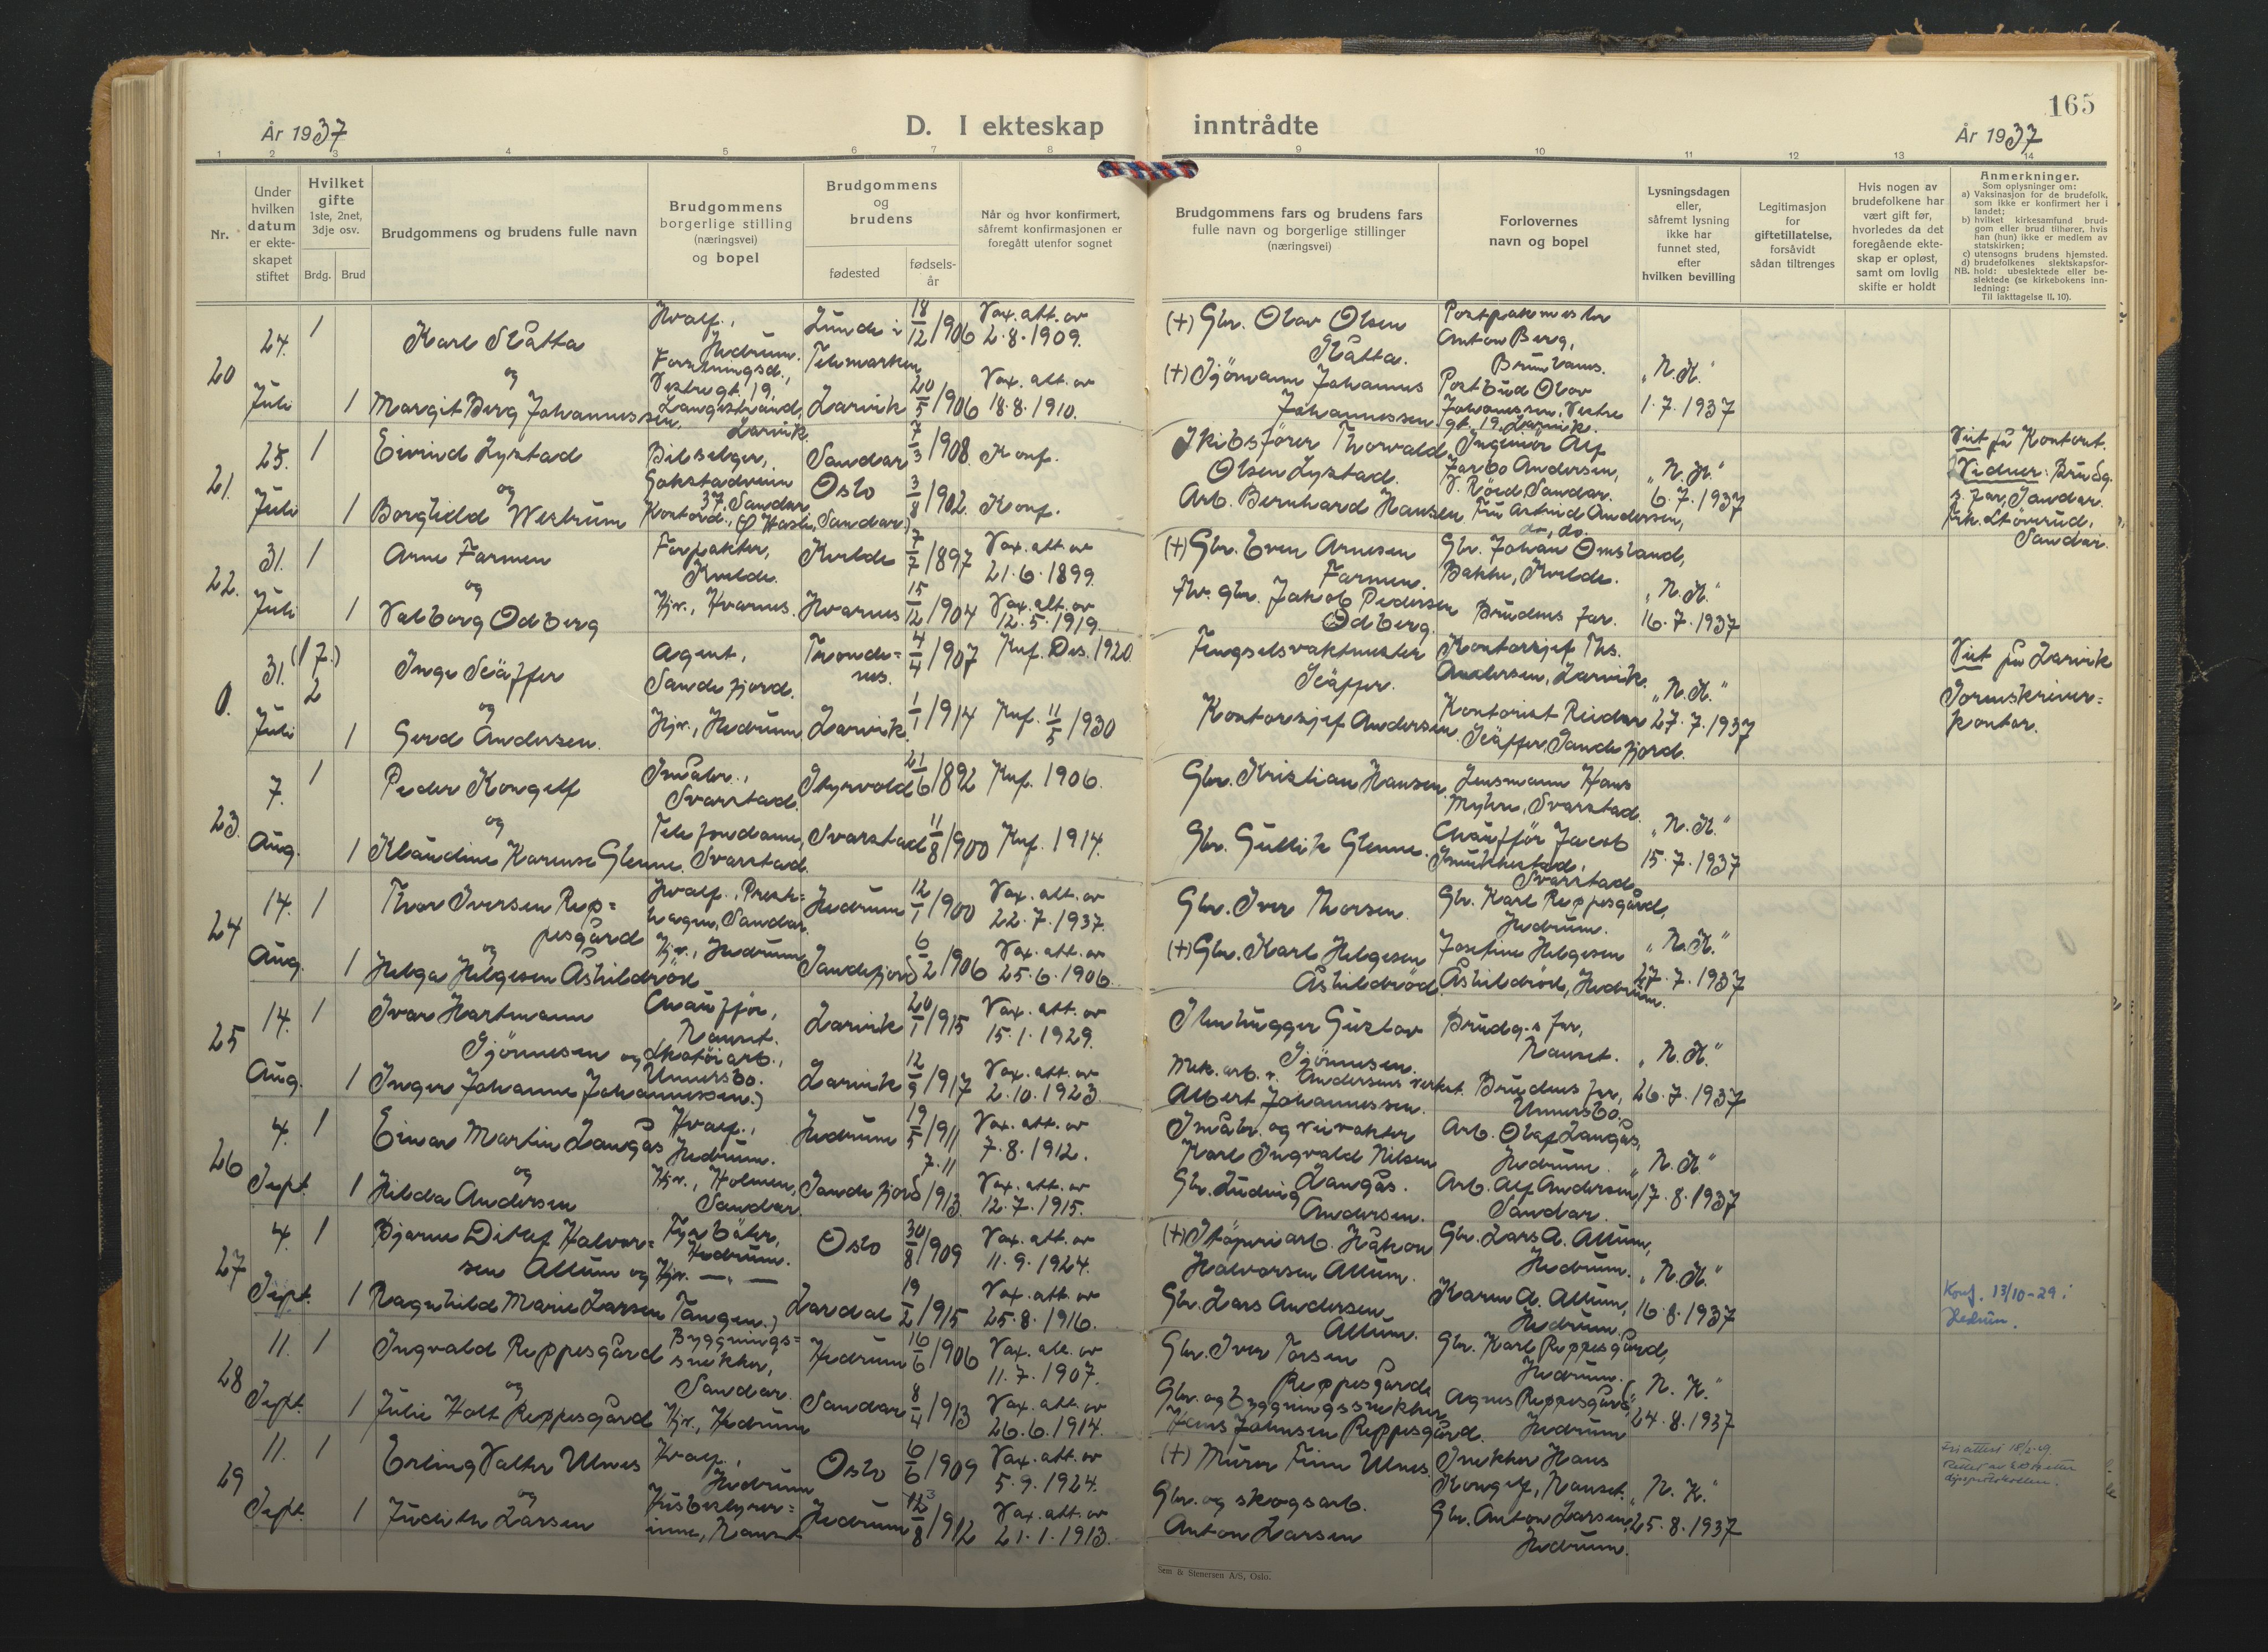 165
År 1937
D. I ekteskap inntrådte
År 1937
1 2 3 4 5 6 7 8 9 10 11 12 13 14
Nr.
Under hvilken datum er ekte-skapet stiftet
Hvilket gifte 1ste, 2net, 3dje osv.
Brdg. Brud
Brudgommens og brudens fulle navn
Brudgommens borgerlige stilling (næringsvei) og bopel
Brudgommens og brudens
fødested
fødsels-år
Når og hvor konfirmert, såfremt konfirmasjonen er foregått utenfor sognet
Brudgommens fars og brudens fars fulle navn og borgerlige stillinger (næringsvei)
Forlovernes navn og bopel
Lysningsdagen eller, såfremt lysning ikke har funnet sted, efter hvilken bevilling
Legitimasjon for giftetillatelse, forsåvidt sådan tiltrenges
Hvis nogen av brudefolkene har vært gift før, hvorledes da det foregående ekte-skap er opløst, samt om lovlig skifte er holdt
Anmerkninger.
Som oplysninger om:
a) Vaksinasjon for de brudefolk, som ikke er konfirmert her i landet;
b) hvilket kirkesamfund brud-gom eller brud tilhører, hvis han (hun) ikke er medlem av statskirken;
c) utensogns brudens hjemsted.
d) brudefolkenes slektskapsfor-hold: ubeslektede eller be-slektede (se kirkebokens inn-ledning:
NB. Til iakttagelse II. 10).
20
24. Juli
1
Karl Skåtta
Hvalf., Hedrum.
Lunde i Telemarken
18/12 1906
Vax. att. av 2.8.1909.
(+) Gbr. Olav Olsen Skåtta.
Anton Berg,
og
1 Margit Berg Johannessen.
Langestrand, Larvik.
Larvik
20/5 1906
Vax. att. av 18.8.1910.
(+) Sjömann Johannes Johannessen
Postbud Olav Johannessen, Vestre gt. 19, Larvik.
"N.K." 1.7.1937
21.
25. Juli
1
Eivind Lystad
Bilselger,
37, Sandar
Sandar
7/3 1908.
Konf.
Skibsfører Thorvald Olsen Lystad.
Ingeniør Alf Jarbo Andersen, V. Röed, Sandar.
og
1 Borghild Westrum
Oslo
3/8 1902.
Konf.
Arb. Bernhard Hansen
Fru Astrid Andersen, do, do.
"N.K." 6.7.1937
Viet på Kontoret.
Vidner: Brudg. s. far, Sandar.
Sandar.
22.
31. Juli
1
Arne Farmen
Forpakter, Kvelde.
Kvelde
7/7 1897
Vax. att. av 21.6.1899.
(+) Gbr. Even Arnesen Farmen.
Gbr. Johan Omsland, Bakke, Kvelde.
og
1 Valborg Odberg
Hjv., Hvarnes.
Hvarnes
15/12 1904
Vax. att. av 12.5.1919.
Fhv. gbr. Jakob Pedersen Odberg.
Brudens far.
"N.K." 16.7.1937
0.
31. (17.) Juli
2
Agent, Sandefjord.
4/4 1907
Knf. Des. 1920.
Fengselsvaktmester
Kontorsjef Ths. Andersen, Larvik.
og
1 Gerd Andersen.
Hjv., Hedrum
Larvik.
1/1 1914
Knf. 11/5 1930
Kontorsjef Andersen
Kontorist Reidar
"N.K." 27.7.1937
Viet på Larvik Sorenskriver=kontor.
23.
7. Aug.
1
Peder Kongelf
Småbr., Svarstad.
Styrvold
21/6 1892
Knf. 1906.
Gbr. Kristian Hansen
Lensmann Hans Myhre, Svarstad.
og
1 Klaudine Karense Glenne.
Telefondame, Svarstad.
Svarstad
11/8 1900
Knf. 1914.
Gbr. Gullik Glenne.
Chauffør Jacob
Svarstad
"N.K." 15.7.1937
24
14. Aug.
1
Thor Iversen Rep=pesgård
Hvalf., Preste=hagen, Sandar.
Hedrum
12/1 1900
Vax. att. av 22.7.1937.
Gbr. Iver Thorsen.
Gbr. Karl Reppesgård, Hedrum.
og
1 Helga Helgesen Åshildrød
Hjv., Hedrum
Sandefjord
6/2 1906
Vax. att. av 25.6.1906.
(+) Gbr. Karl Helgesen Åshildrød.
Josefine Helgesen Åshildrød, Hedrum.
"N.K." 27.7.1937
25
14. Aug.
1
Ivar Hartmann Gjönnesen og
Chauffør, Nanset.
Larvik
20/1 1915
Vax. att. av 15.1.1929.
Stenhugger Gustav Gjönnesen.
Brudg.s far, Nanset.
1 Inger Johanne Johannessen.)
Skotøiarb., Unnersbo.
Larvik
12/9 1917
Vax. att. av 2.10.1923.
Mek. arb. v. Andersens verkst. Albert Johannessen.
Brudens far, Unnersbo.
"N.K." 26.7.1937
26
4. Sept.
1
Einar Martin Langås
Hvalf., Hedrum.
Hedrum
19/5 1911
Vax. att. av 7.8.1912.
Småbr. og veivakter Karl Ingvald Nilsen Langås.
Arb. Olaf Langås, Hedrum.
og
1 Hilda Andersen
Hjv., Holmen, Sandar.
Sandefjord
7.11 1913.
Vax. att. av 12.7.1915.
Gbr. Ludvig Andersen.
Arb. Alf Andersen, Sandar.
"N.K." 17.8.1937
27
4. Sept.
1
Bjarne Ditlef Halvor=sen Allum og
Fyrbøter, Hedrum.
Oslo
30/8 1909
Vax. att. av 11.9.1924.
(+) Støperiarb. Håkon Halvorsen Allum.
Gbr. Lars A. Allum, Hedrum.
1 Ragnhild Marie Larsen
Hjv. —"— Tangen.)
Lardal
19/2 1915
Vax. att. av 25.8.1916.
Gbr. Lars Andersen Allum.
Karen A. Allum, Hedrum.
"N.K." 16.8.1937
Konf. 13/10-29 i Hedrum.
28
11. Sept.
1
Ingvald Reppesgård
Byggnings=snekker, Sandar.
Hedrum
16/6 1906
Vax. att. av 11.7.1907.
Gbr. Iver Torsen Reppesgård
Gbr. Karl Reppesgård, Hedrum.
og
1 Julie Holt Reppesgård
Hjv., Hedrum
Sandar
8/4 1913
Vax. att. av 26.6.1914.
Gbr. og byggningssnekker Hans Johnsen Reppesgård.
Agnes Reppesgård, Hedrum
"N.K." 24.8.1937
29
11. Sept.
1
Erling Valter Ulnes
Hvalf., Hedrum
Oslo
6/6 1909
Vax. att. av 5.9.1924.
(+) Murer Finn Ulnes.
Snekker Hans Kongelf, Nanset.
og
1 Judith Larsen
Husbestyrer=inne, Nanset
Hedrum
8 1912
Vax. att. av 21.1.1913.
Gbr. og skogsarb. Anton Larsen
Gbr. Anton Larsen, Hedrum.
"N.K." 25.8.1937
Sem & Stenersen A/S, Oslo.